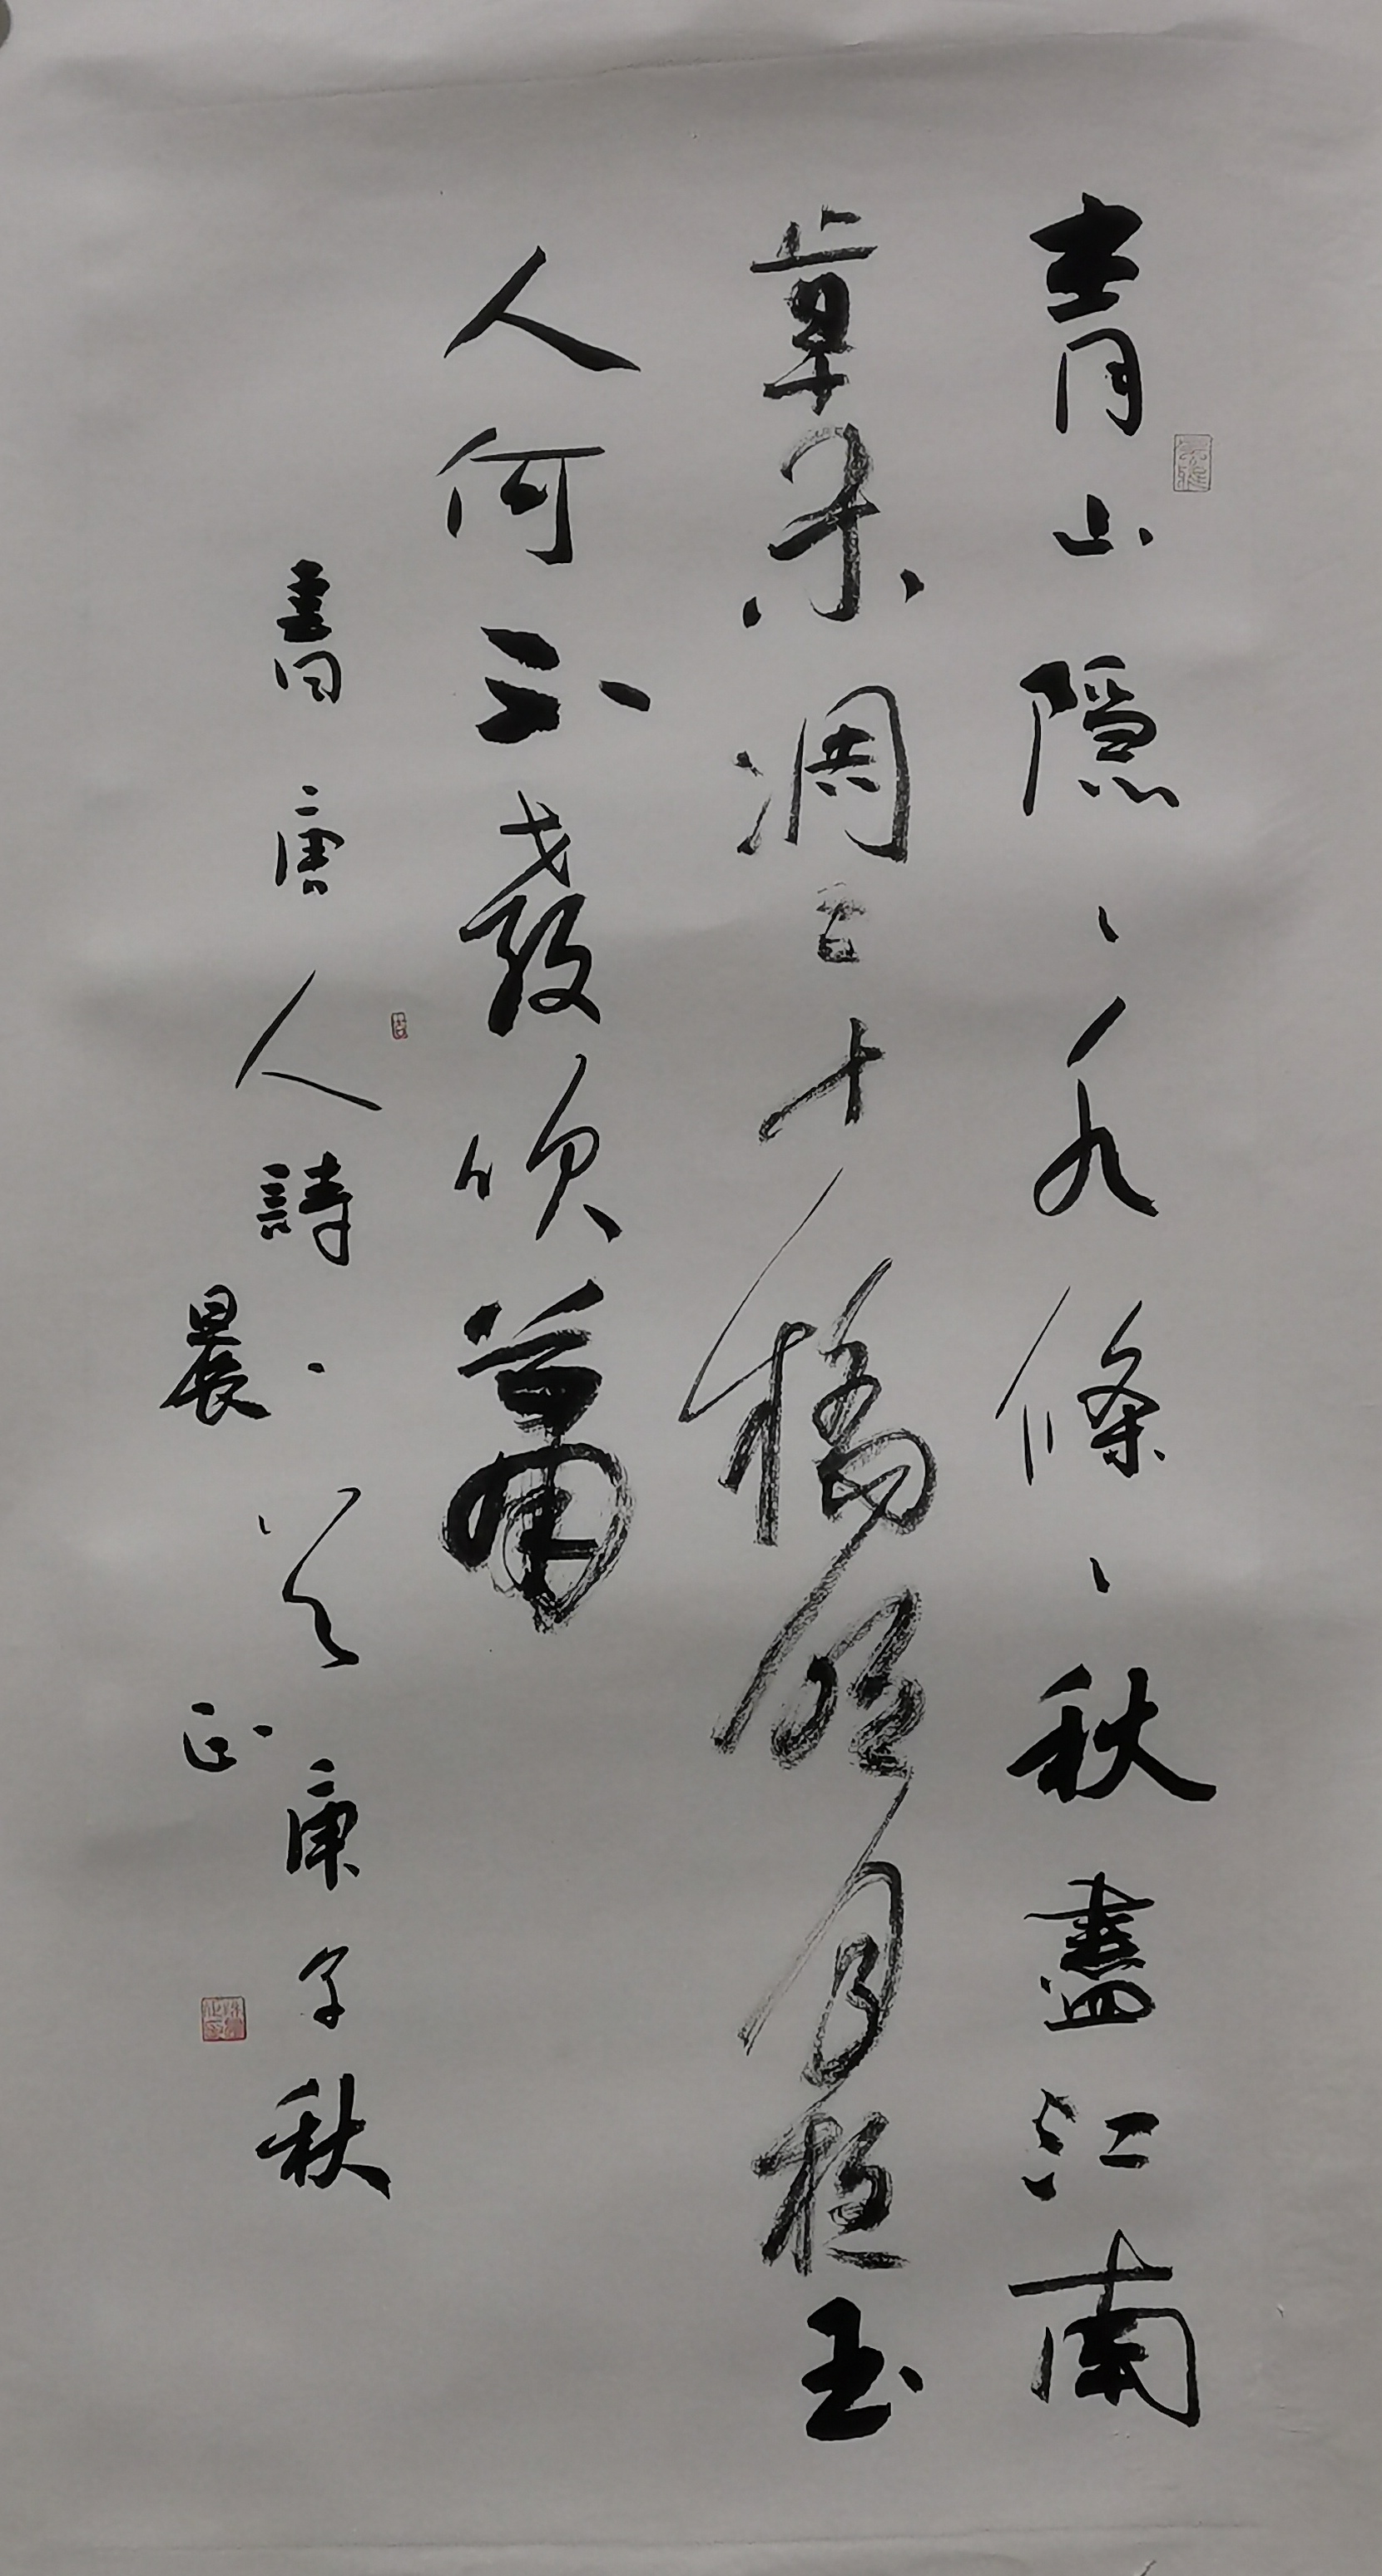 青山隱、水條、秋盡江南
草未凋二十橋明月夜玉
人何處教吹簫
書唐人詩、庚子秋
晨正